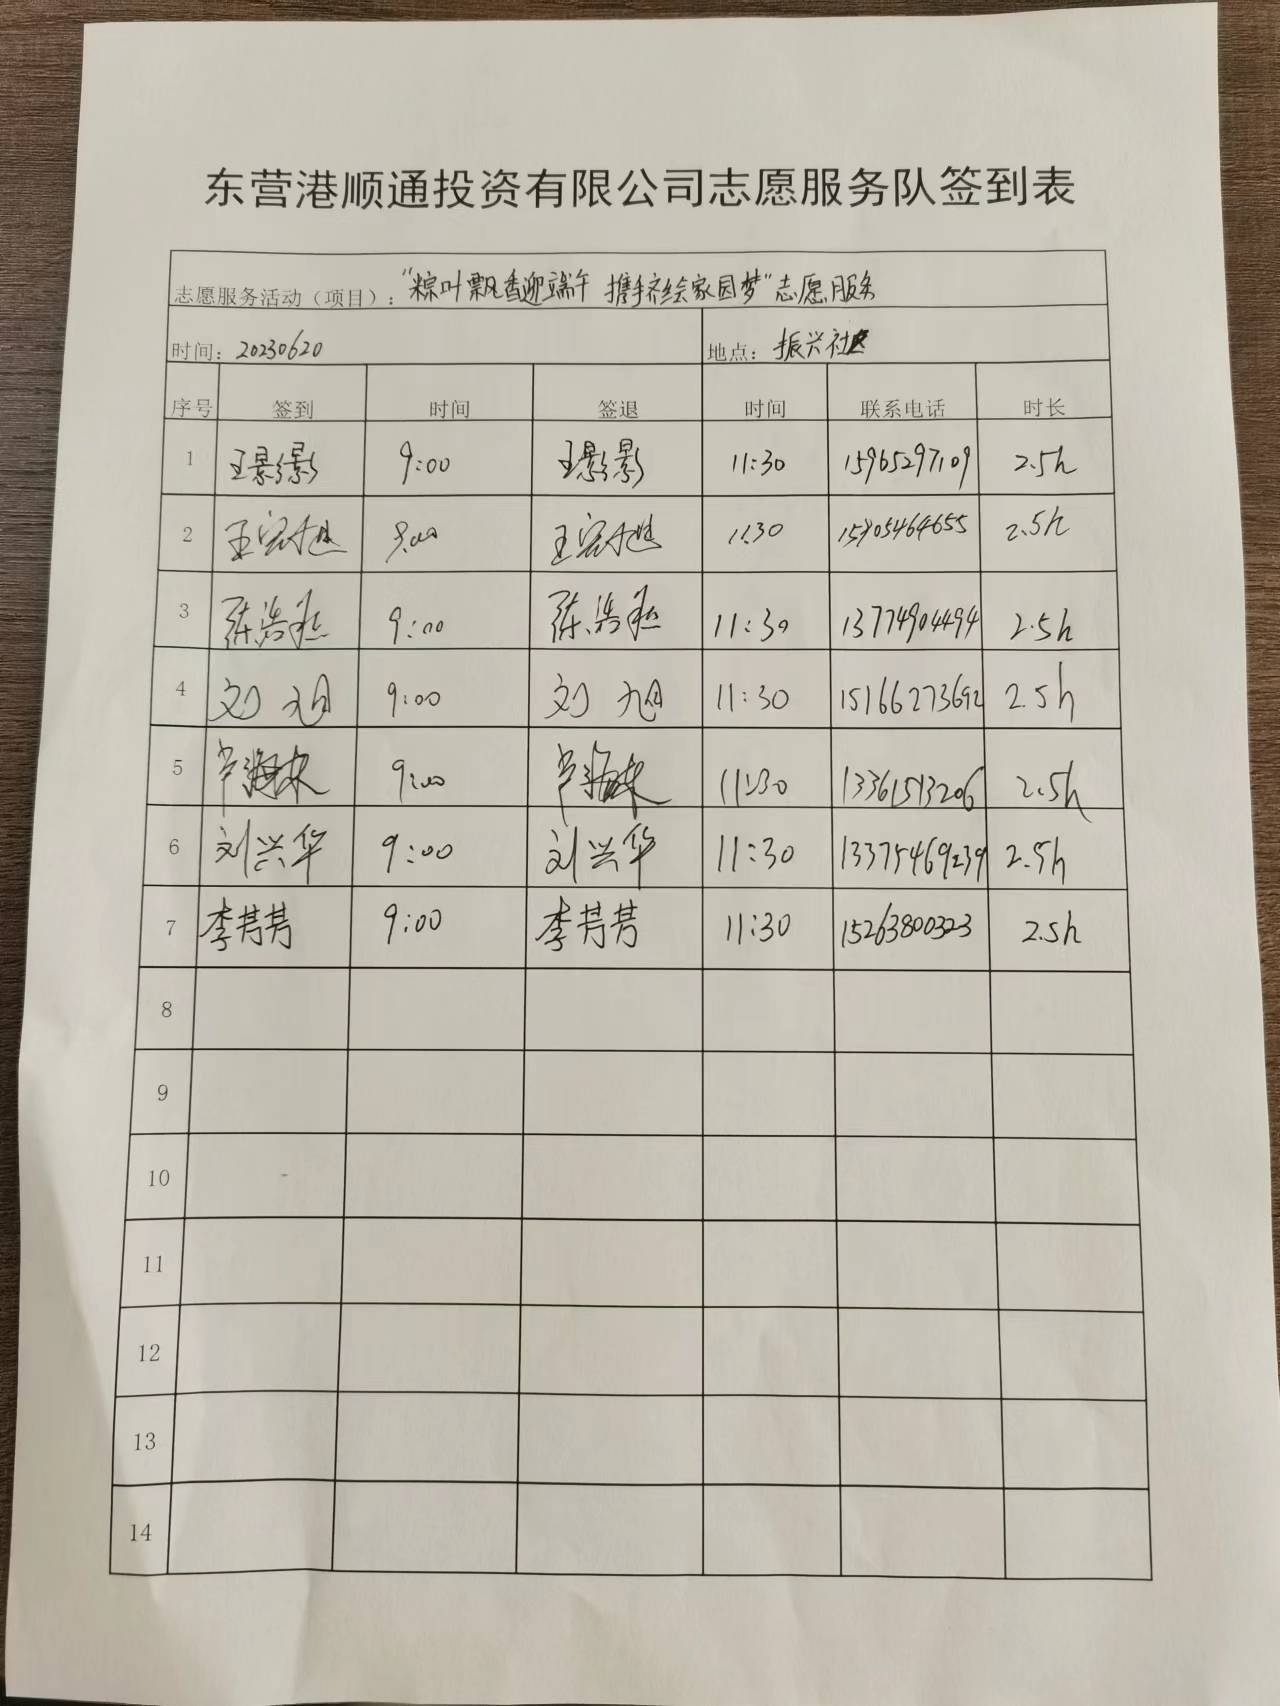 东营港顺通投资有限公司志愿服务队签到表
志愿服务活动（项目）：“粽叶飘香迎端午 携手绘家园梦”志愿服务
时间：20230620 地点：振兴社区
序号 签到 时间 签退 时间 联系电话 时长
1 王影影 9:00 王影影 11:30 15965297109 2.5h
2 9:00 11:30 15905464655 2.5h
3 9:00 11:30 13774904494 2.5h
4 刘旭 9:00 刘旭 11:30 15166273692 2.5h
5 9:00 11:30 13361513206 2.5h
6 刘兴华 9:00 刘兴华 11:30 13375469239 2.5h
7 李芳芳 9:00 李芳芳 11:30 15263800323 2.5h
8
9
10
11
12
13
14